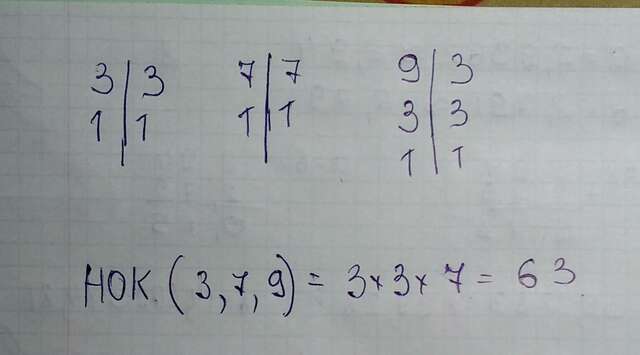 3 | 3 7 | 7 9 | 3
1 | 1 1 | 1 3 | 3
1 | 1
НОК. (3, 7, 9) = 3 × 3 × 7 = 63